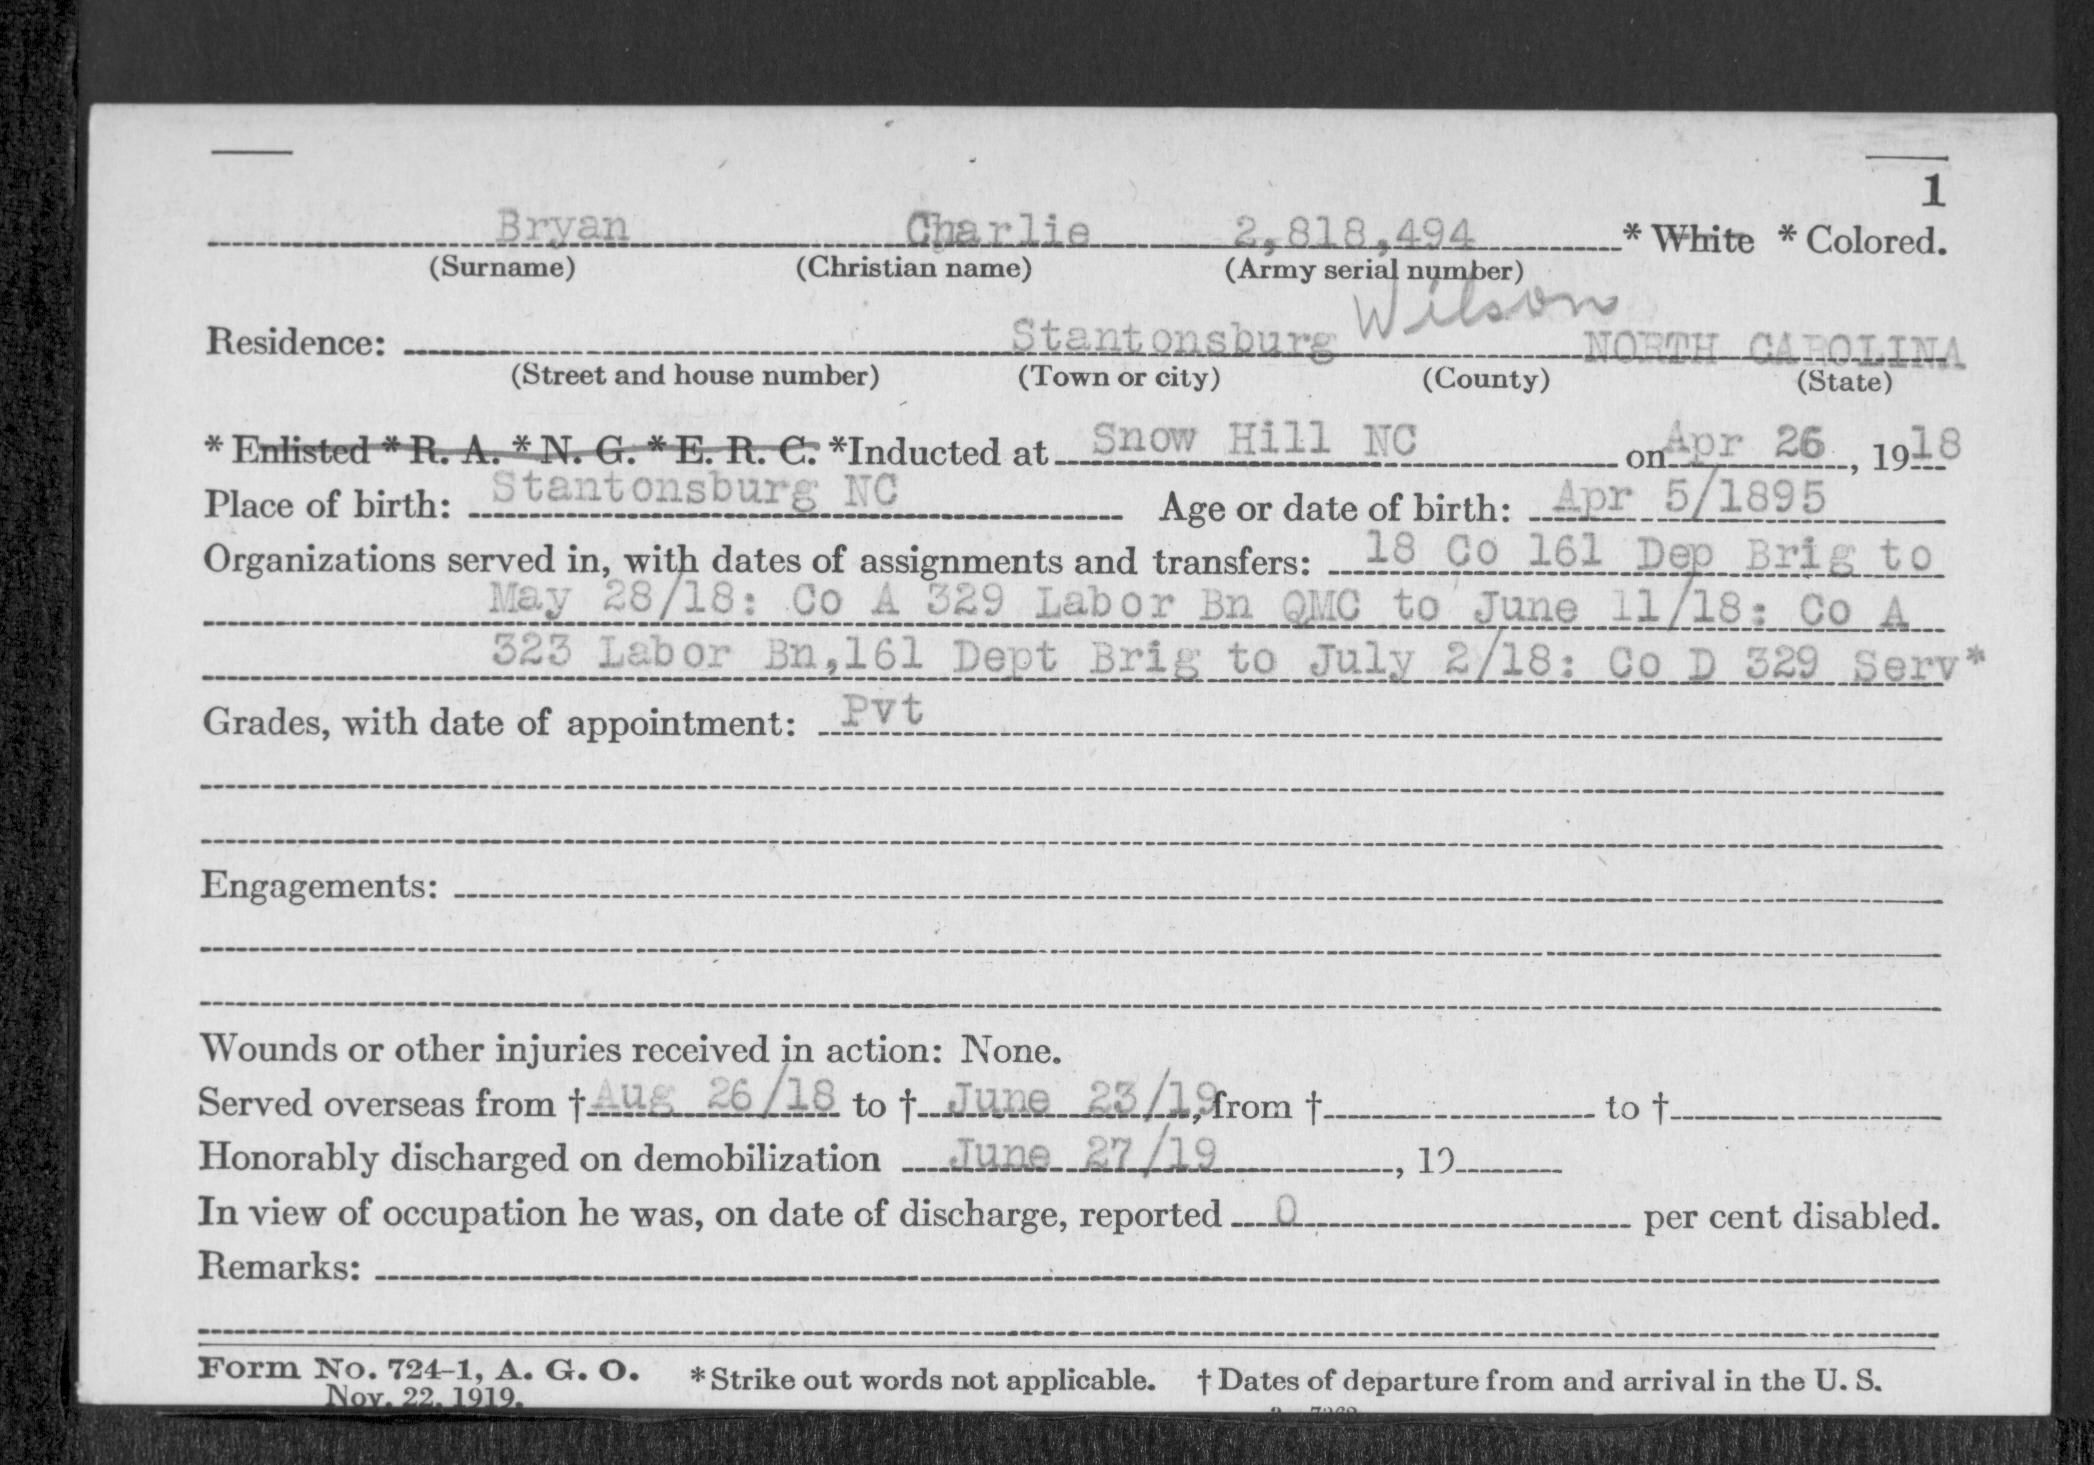 1
Bryan Charlie 2,818,494 * White * Colored.
(Surname) (Christian name) (Army serial number)
Wilson
Residence: Stantonsburg NORTH CAROLINA
(Street and house number) (Town or city) (County) (State)
* Enlisted * R. A. * N. G. * E. R. C. *Inducted at Snow Hill NC on Apr 26, 1918
Place of birth: Stantonsburg NC Age or date of birth: Apr 5/1895
Organizations served in, with dates of assignments and transfers: 18 Co 161 Dep Brig to
May 28/18: Co A 329 Labor Bn QMC to June 11/18: Co A
323 Labor Bn,161 Dept Brig to July 2/18: Co D 329 Serv*
Grades, with date of appointment: Pvt
Engagements:
Wounds or other injuries received in action: None.
Served overseas from † Aug 26/18 to † June 23/19, from † to †
Honorably discharged on demobilization June 27/19, 19
In view of occupation he was, on date of discharge, reported 0 per cent disabled.
Remarks:
Form No. 724-1, A. G. O. * Strike out words not applicable. † Dates of departure from and arrival in the U. S.
Nov. 22, 1919.